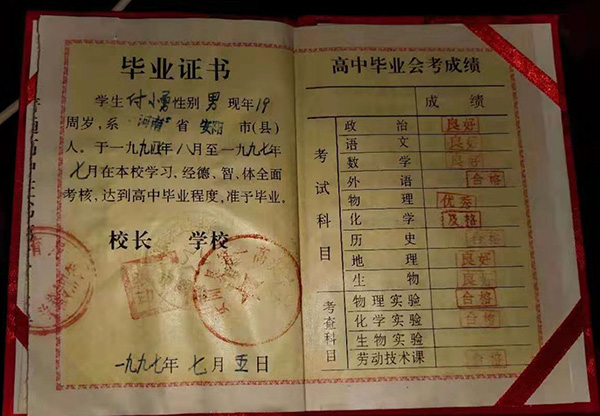 毕业证书
学生付小勇性别男现年19
周岁，系河南省安阳市(县)
人，于一九九四年八月至一九九七年
七月在本校学习、经德、智、体全面
考核，达到高中毕业程度，准予毕业。
校长 学校
一九九七年七月五日
高中毕业会考成绩
成绩
考试科目
政治 良好
语文 良好
数学 良好
外语 合格
物理 优秀
化学 及格
历史 合格
地理 良好
生物 良好
考查科目
物理实验 合格
化学实验 合格
生物实验
劳动技术课 合格